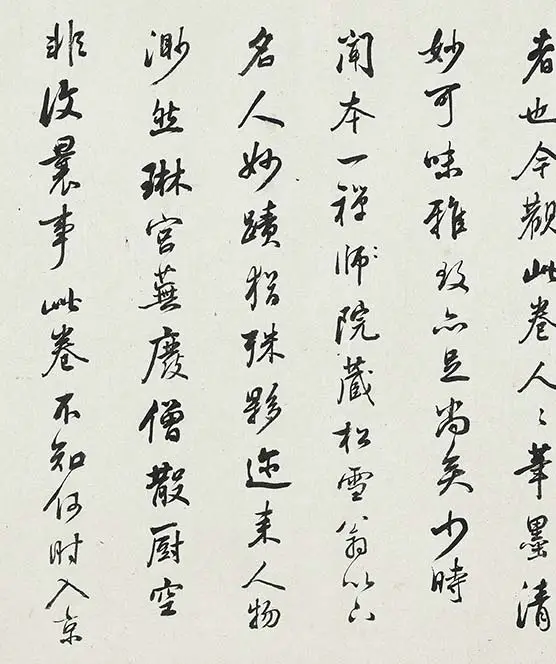 者也今觀此卷人〻筆墨清
妙可味雅致亦足尚矣少時
聞本一禪師院藏松雪翁以下
名人妙蹟猶殊夥迩来人物
渺然琳宮蕪廢僧散厨空
非復曩事此卷不知何时入京